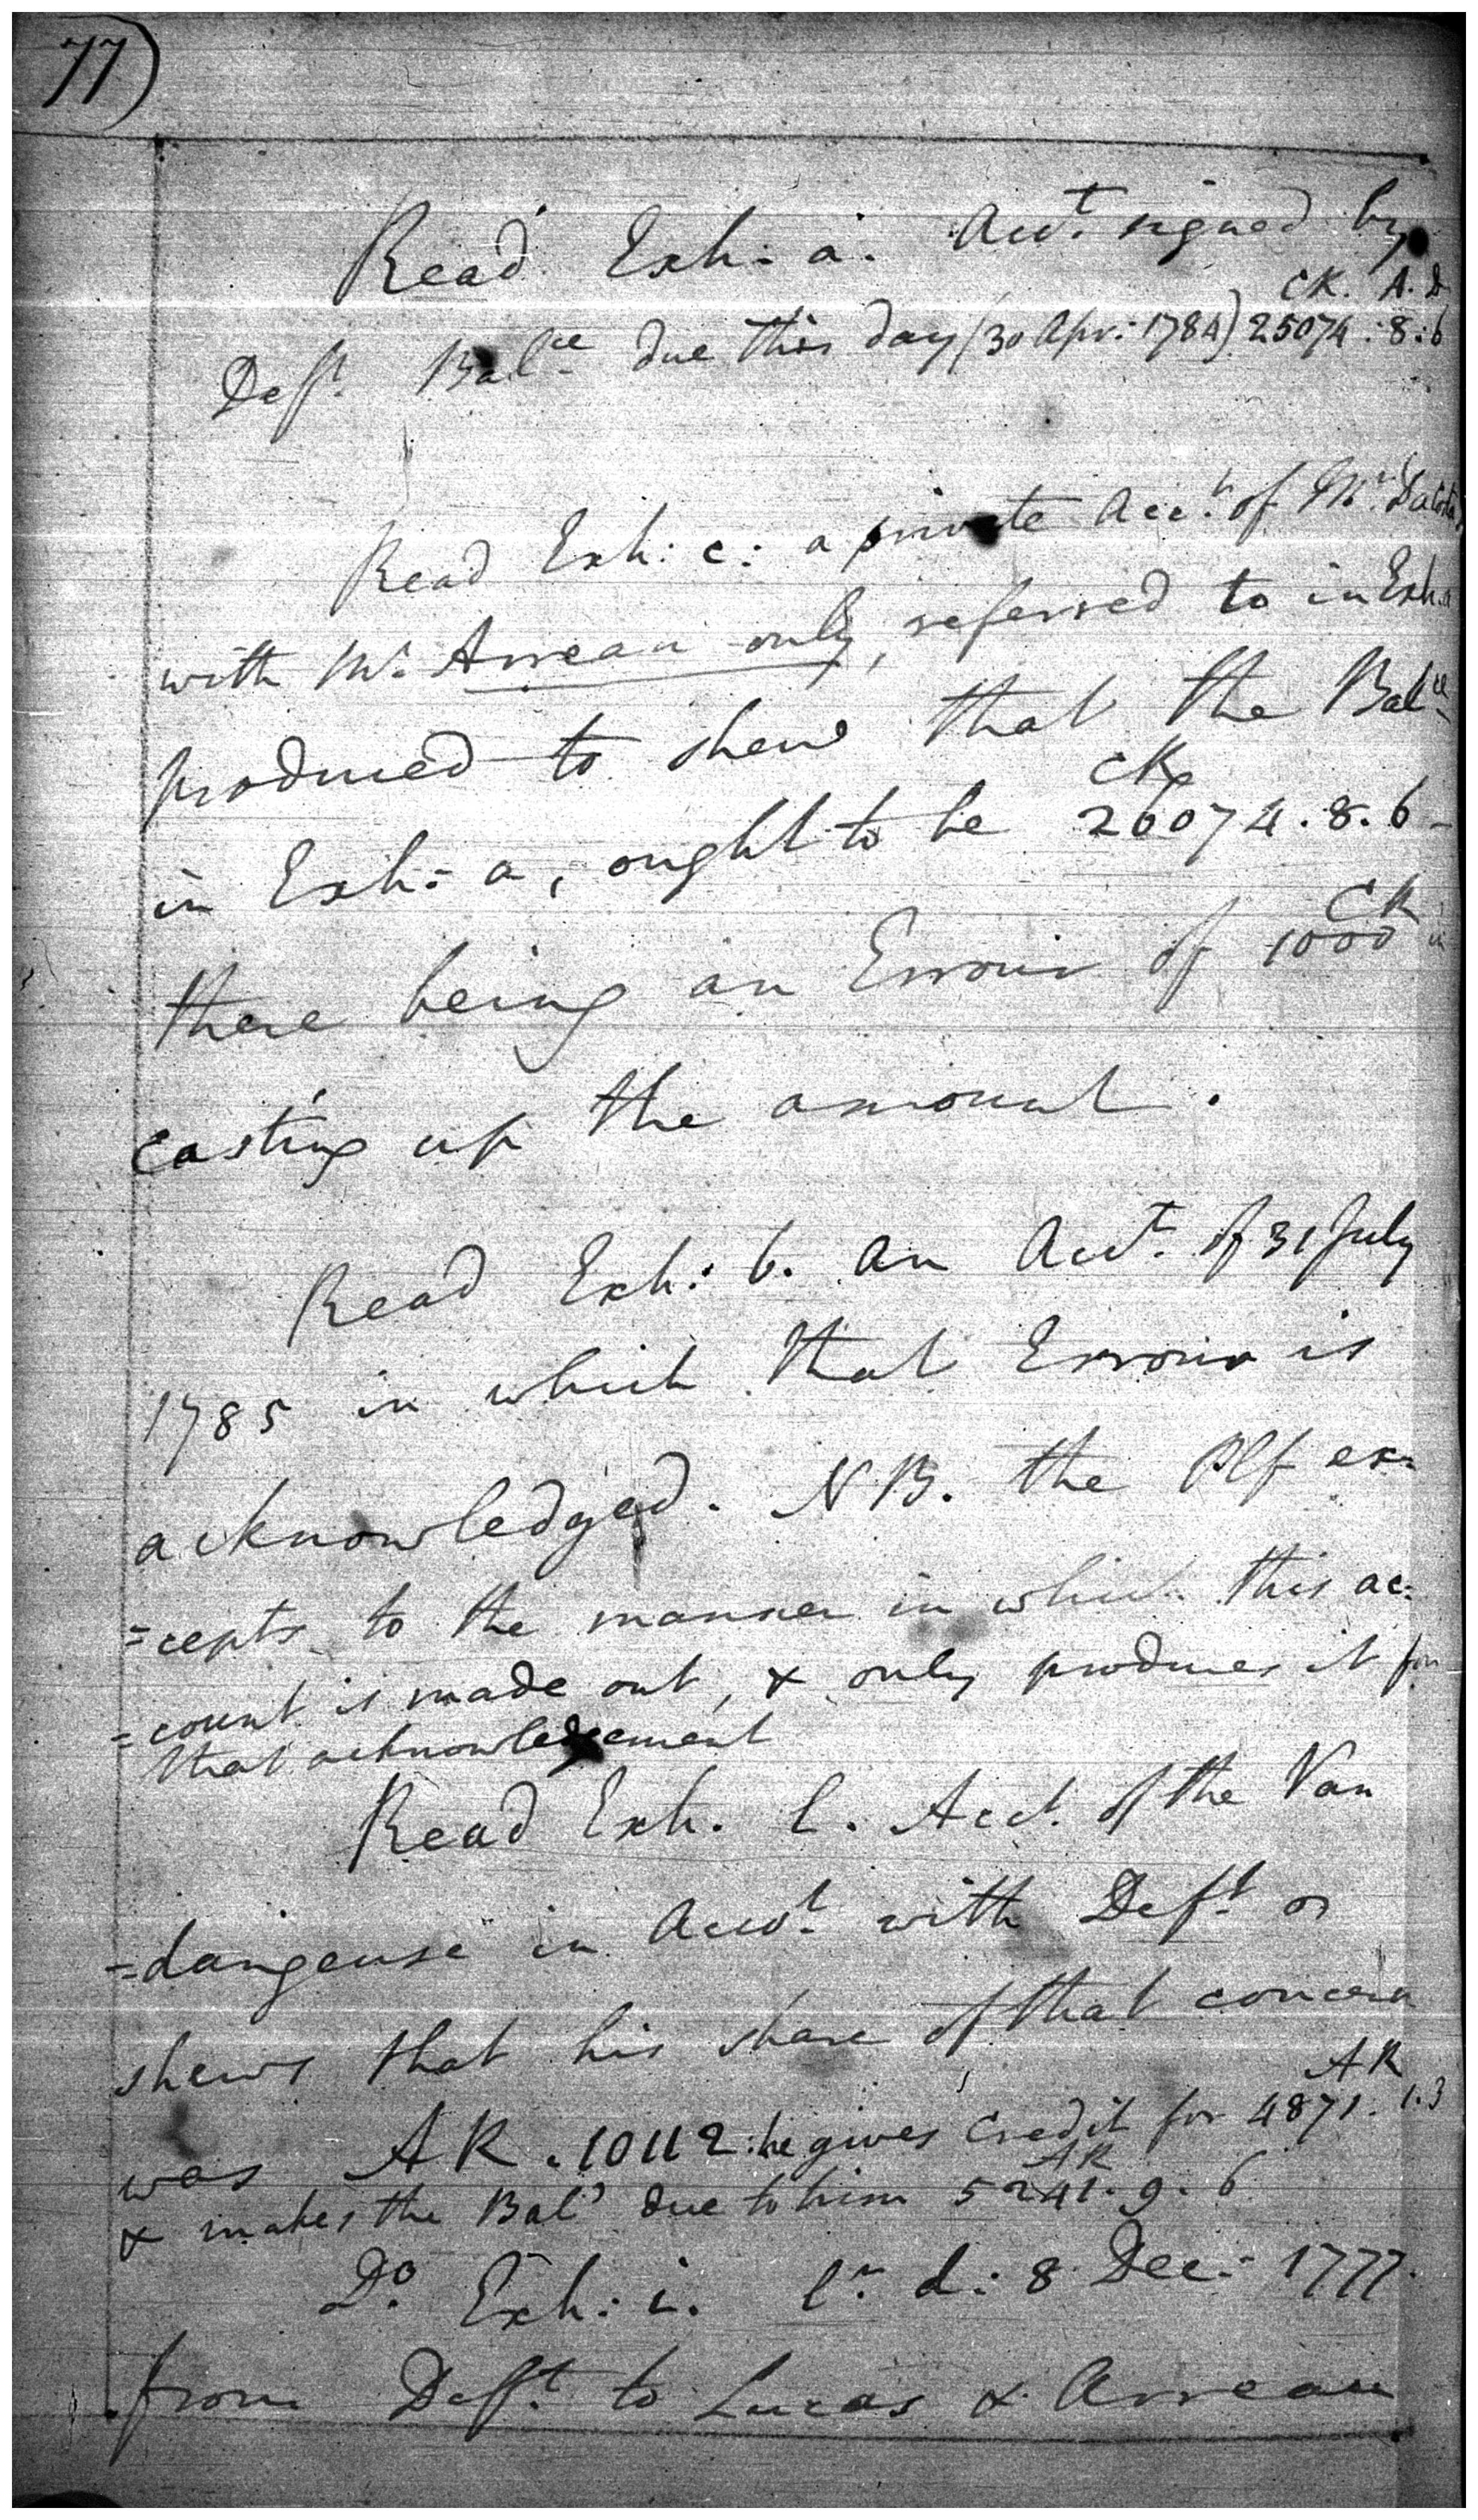 77)
Read Exh: a. Acct. signed by
CK. A. D
Deft. Balce due this day (30 Apr: 1784) 25074:8:6
Read Exh: c: a private Acct. of Mr. DaCosta
with Mr. Arreau only, referred to in Exh. a
produced to shew that the Balce
CK
in Exh: a, ought to be 26074.8.6-
CK
there being an Errour of 1000 in
casting up the amount.
Read Exh: b. an Acct. of 31 July
1785 in which that Errour is
acknowledged. NB. the Plf ex=
=cepts to the manner in which this ac=
=count is made out, & only produces it for
that acknowledgement
Read Exh. l. Acct. of the Van
=dangeuse in Accot. with Deft.
shews that his share of that concern
AK
was AK. 10112: he gives credit for 4871. 1.3
AK
& makes the Bal' due to him 5241. 9. 6
Do. Exh: i. lr. d: 8 Dec: 1777.
from Deft. to Lucas & Arreau